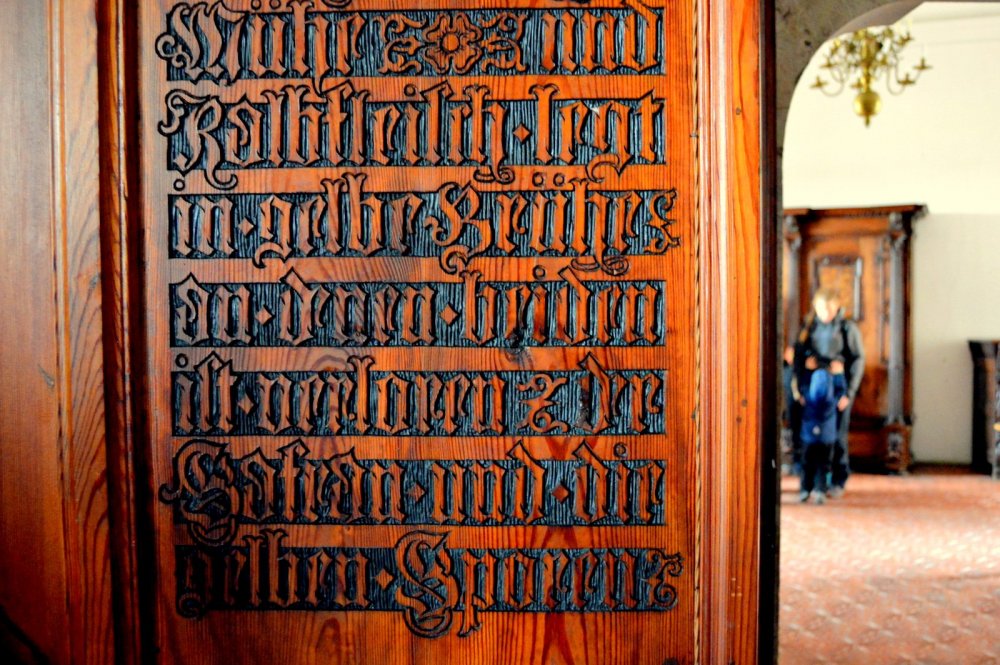 Mühe und
Kalbfleisch · legt
in · gelbe Brühe
an · denen · beiden
ist · verloren der
Safran · und · die
gelben · Sporen